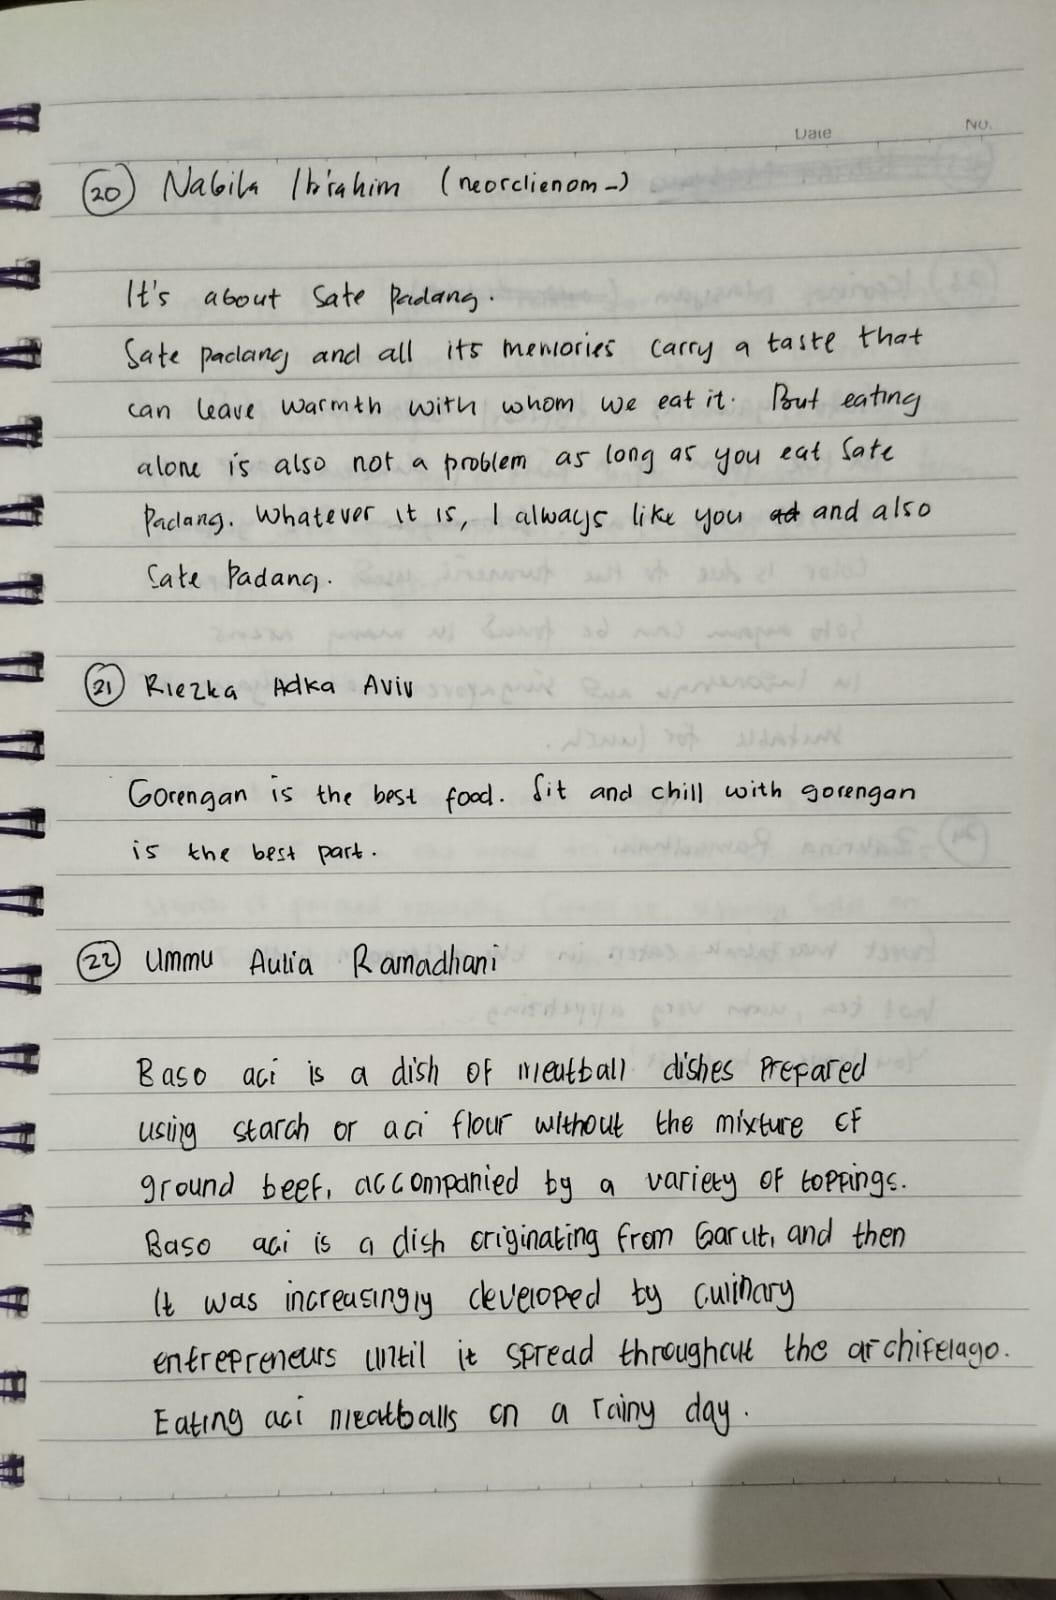 Date No.
20 Nabila Ibrahim (neorclienom_)
It's about Sate Padang.
Sate padang and all its memories carry a taste that
can leave warmth with whom we eat it. But eating
alone is also not a problem as long as you eat Sate
Padang. Whatever it is, I always like you ad and also
Sate Padang.
21 Riezka Adka Aviv
Gorengan is the best food. Sit and chill with gorengan
is the best part.
22 Ummu Aulia Ramadhani
Baso aci is a dish of meatball dishes prepared
using starch or aci flour without the mixture of
ground beef, accompanied by a variety of toppings.
Baso aci is a dish originating from Garut, and then
it was increasingly developed by culinary
entrepreneurs until it spread throughout the archipelago.
Eating aci meatballs on a rainy day.